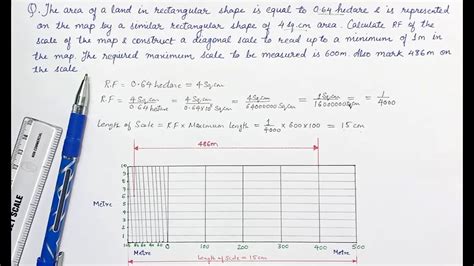 Q. The area of a land in rectangular shape is equal to 0.64 hectare & is represented
on the map by a similar rectangular shape of 4 sq.cm area. Calculate RF of the
scale of the map & construct a diagonal scale to read up to a minimum of 1m in
the map. The required maximum scale to be measured is 600m. Also mark 486m on
the scale.
R.F = 0.64 hectare = 4 Sq.cm
R.F = 4 Sq.cm / 0.64 hectare = 4 Sq.cm / 0.64×10⁸ = 4 Sq.cm / 64000000 Sq.cm = 1 Sq.cm / 16000000 Sq.cm = 1 / 4000
Length of Scale = R.F × Maximum length = 1/4000 × 600×100 = 15 cm
486m
10
9
8
7
6
5
4
3
2
1
0
Metre
100 80 60 40 20 0 100 200 300 400 500
Metre Metre
Length of Scale = 15cm